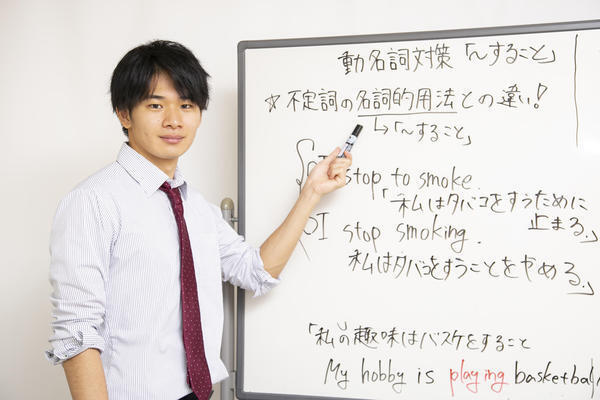 動名詞対策「〜すること」
☆不定詞の名詞的用法との違い!
↳「〜すること」
stop to smoke.
「私はタバコをすうために
止まる。」
I stop smoking.
私はタバコをすうことをやめる。」
「私の趣味はバスケをすること
My hobby is playing basketball